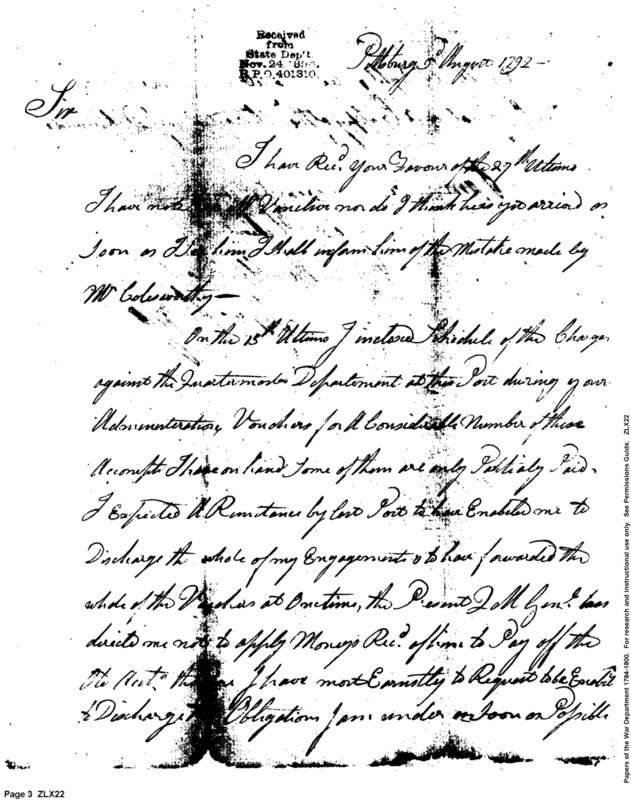 Received
from
State Dep't
Nov. 24, 189
R.P.O. 401310.
Pittsburg 3d August 1792 —
Sir
I have Recd. Your Favour of the 27th Ultimo
I have not Mr Vancleve nor do I think he is yet arrived as
soon as I him I shall inform him of the Mistake made by
Mr Colesworthy —
On the 15th Ultimo I inclosed Schedule of the Charges
against the Quartermaster Departement at this Post during your
Administeration, Vouchers for A Considerable Number of these
Accompts I have on hand Some of them are only Partialy Paid.
I Expected A Remitance by last Post to have Enabled me to
Discharge th whole of my Engagements & to have forwarded the
whole of the Vouchers at One time, the Present Q M Genl. has
directd me not to apply Moneys Recd. of him to Pay off the
Old Acts. I have most Earnstly to Request to be Enabld
to Discharge Obligations I am under as Soon as Possible
Page 3 ZLX22
Papers of the War Department 1784-1800. For research and instructional use only. See Permissions Guide. ZLX22